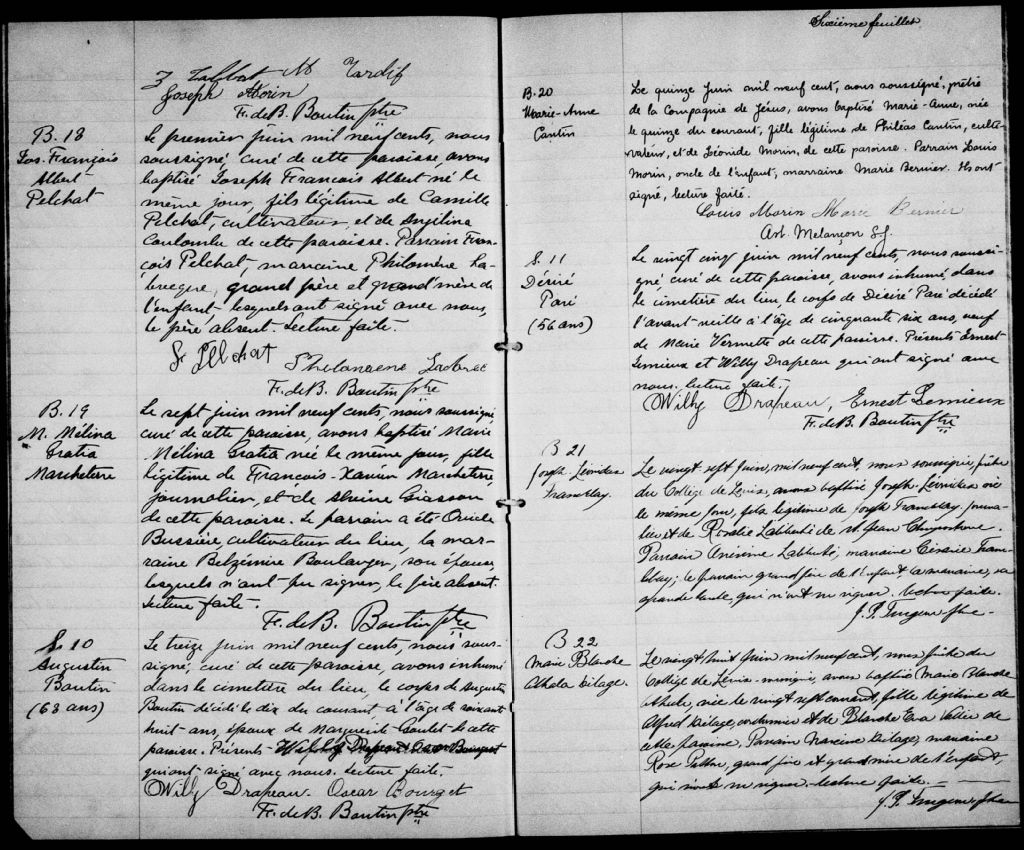 Joseph Morin
F. de B. Boutin ptre
B. 18
Jos. François
Albert
Pelchat
Le premier juin mil neuf cents, nous
soussigné curé de cette paroisse, avons
baptisé Joseph François Albert né le
même jour, fils légitime de Camille
Pelchat, cultivateur, et de Angélina
Coulombe de cette paroisse. Parrain Fran-
çois Pelchat, marraine Philomène La-
brecque, grand père et grand mère de
l'enfant lesquels ont signé avec nous,
le père absent. Lecture faite.
F. de B. Boutin ptre
B. 19
M. Mélina
Gratia
Marcheterre
Le sept juin mil neuf cents, nous soussigné,
curé de cette paroisse, avons baptisé Marie
Mélina Gratia née le même jour, fille
légitime de François-Xavier Marcheterre
journalier, et de Giasson
de cette paroisse. Le parrain a été
Bussière cultivateur du lieu, la mar-
raine Belzémire Boulanger, son épouse,
lesquels n'ont pu signer, le père absent.
Lecture faite.
F. de B. Boutin ptre
S. 10
Augustin
Boutin
(68 ans)
Le treize juin mil neuf cents, nous sous-
signé, curé de cette paroisse, avons inhumé
dans le cimetière du lieu, le corps de Augustin
Boutin décédé le dix du courant, à l'âge de soixante
huit ans, époux de Marguerite Goulet de cette
paroisse. Présents Willy Drapeau & Oscar Bourget
qui ont signé avec nous. Lecture faite.
Willy Drapeau Oscar Bourget
F. de B. Boutin ptre
Sixième feuillet
B. 20
Marie-Anne
Cantin
Le quinze Juin mil neuf cent, nous soussigné, prêtre
de la Compagnie de Jésus, avons baptisé Marie-Anne, née
le quinze du courant, fille légitime de Philéas Cantin, culti-
vateur, et de Léonide Morin, de cette paroisse. Parrain Louis
Morin, oncle de l'enfant, marraine Marie Bernier. Ils ont
signé, lecture faite.
Louis Morin Marie Bernier
Art. Melançon S.J.
S. 11
Désiré
Paré
(56 ans)
Le vingt cinq juin mil neuf cents, nous soussi-
gné, curé de cette paroisse, avons inhumé dans
le cimetière du lieu, le corps de Désiré Paré décédé
l'avant-veille à l'âge de cinquante six ans, veuf
de Marie Vermette de cette paroisse. Présents Ernest
Lemieux et Willy Drapeau qui ont signé avec
nous. Lecture faite.
Willy Drapeau, Ernest Lemieux
F. de B. Boutin ptre
B 21
Joseph-Léonidas
Tramblay.
Le vingt-sept Juin, mil neuf cent, nous soussigné, prêtre
du Collège de Lévis, avons baptisé Joseph-Léonidas né
le même jour, fils légitime de Joseph Tramblay, journa-
lier et de Rosalie Labbé de St. Jean Chrysostome.
Parrain Onésime Labbé, marraine Césarie Tram-
blay; le parrain grand père de l'enfant la marraine, sa
grande tante, qui n'ont su signer. Lecture faite.
B 22
Marie Blanche
Le vingt huit Juin mil neuf cent, nous prêtre du
Collège de Lévis soussigné, avons baptisé Marie Blanche
née le vingt sept courant, fille légitime de
Alfred cordonnier et de Blanche Eva Vallée de
cette paroisse, Parrain Narcisse marraine
Rose grand père et grand mère de l'enfant,
qui n'ont su signer. Lecture faite.